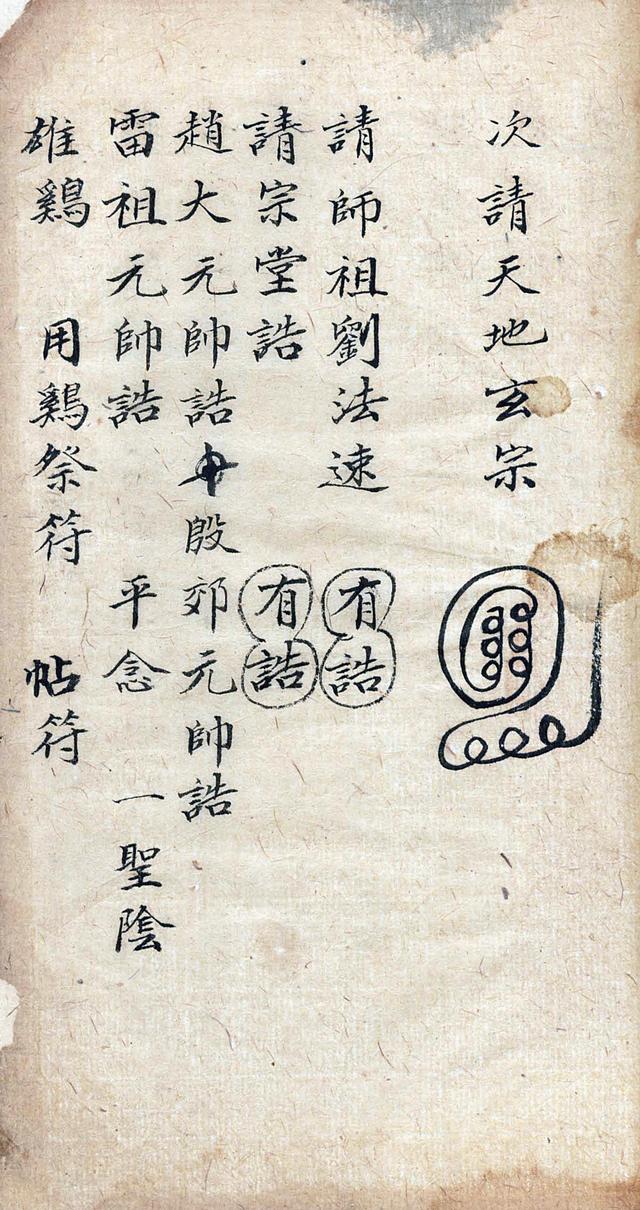 次請天地玄宗
請師祖劉法速 有誥
請宗堂誥 有誥
趙大元帥誥 殷郊元帥誥
雷祖元帥誥 平念 一聖陰
雄鷄 用鷄祭符 帖符